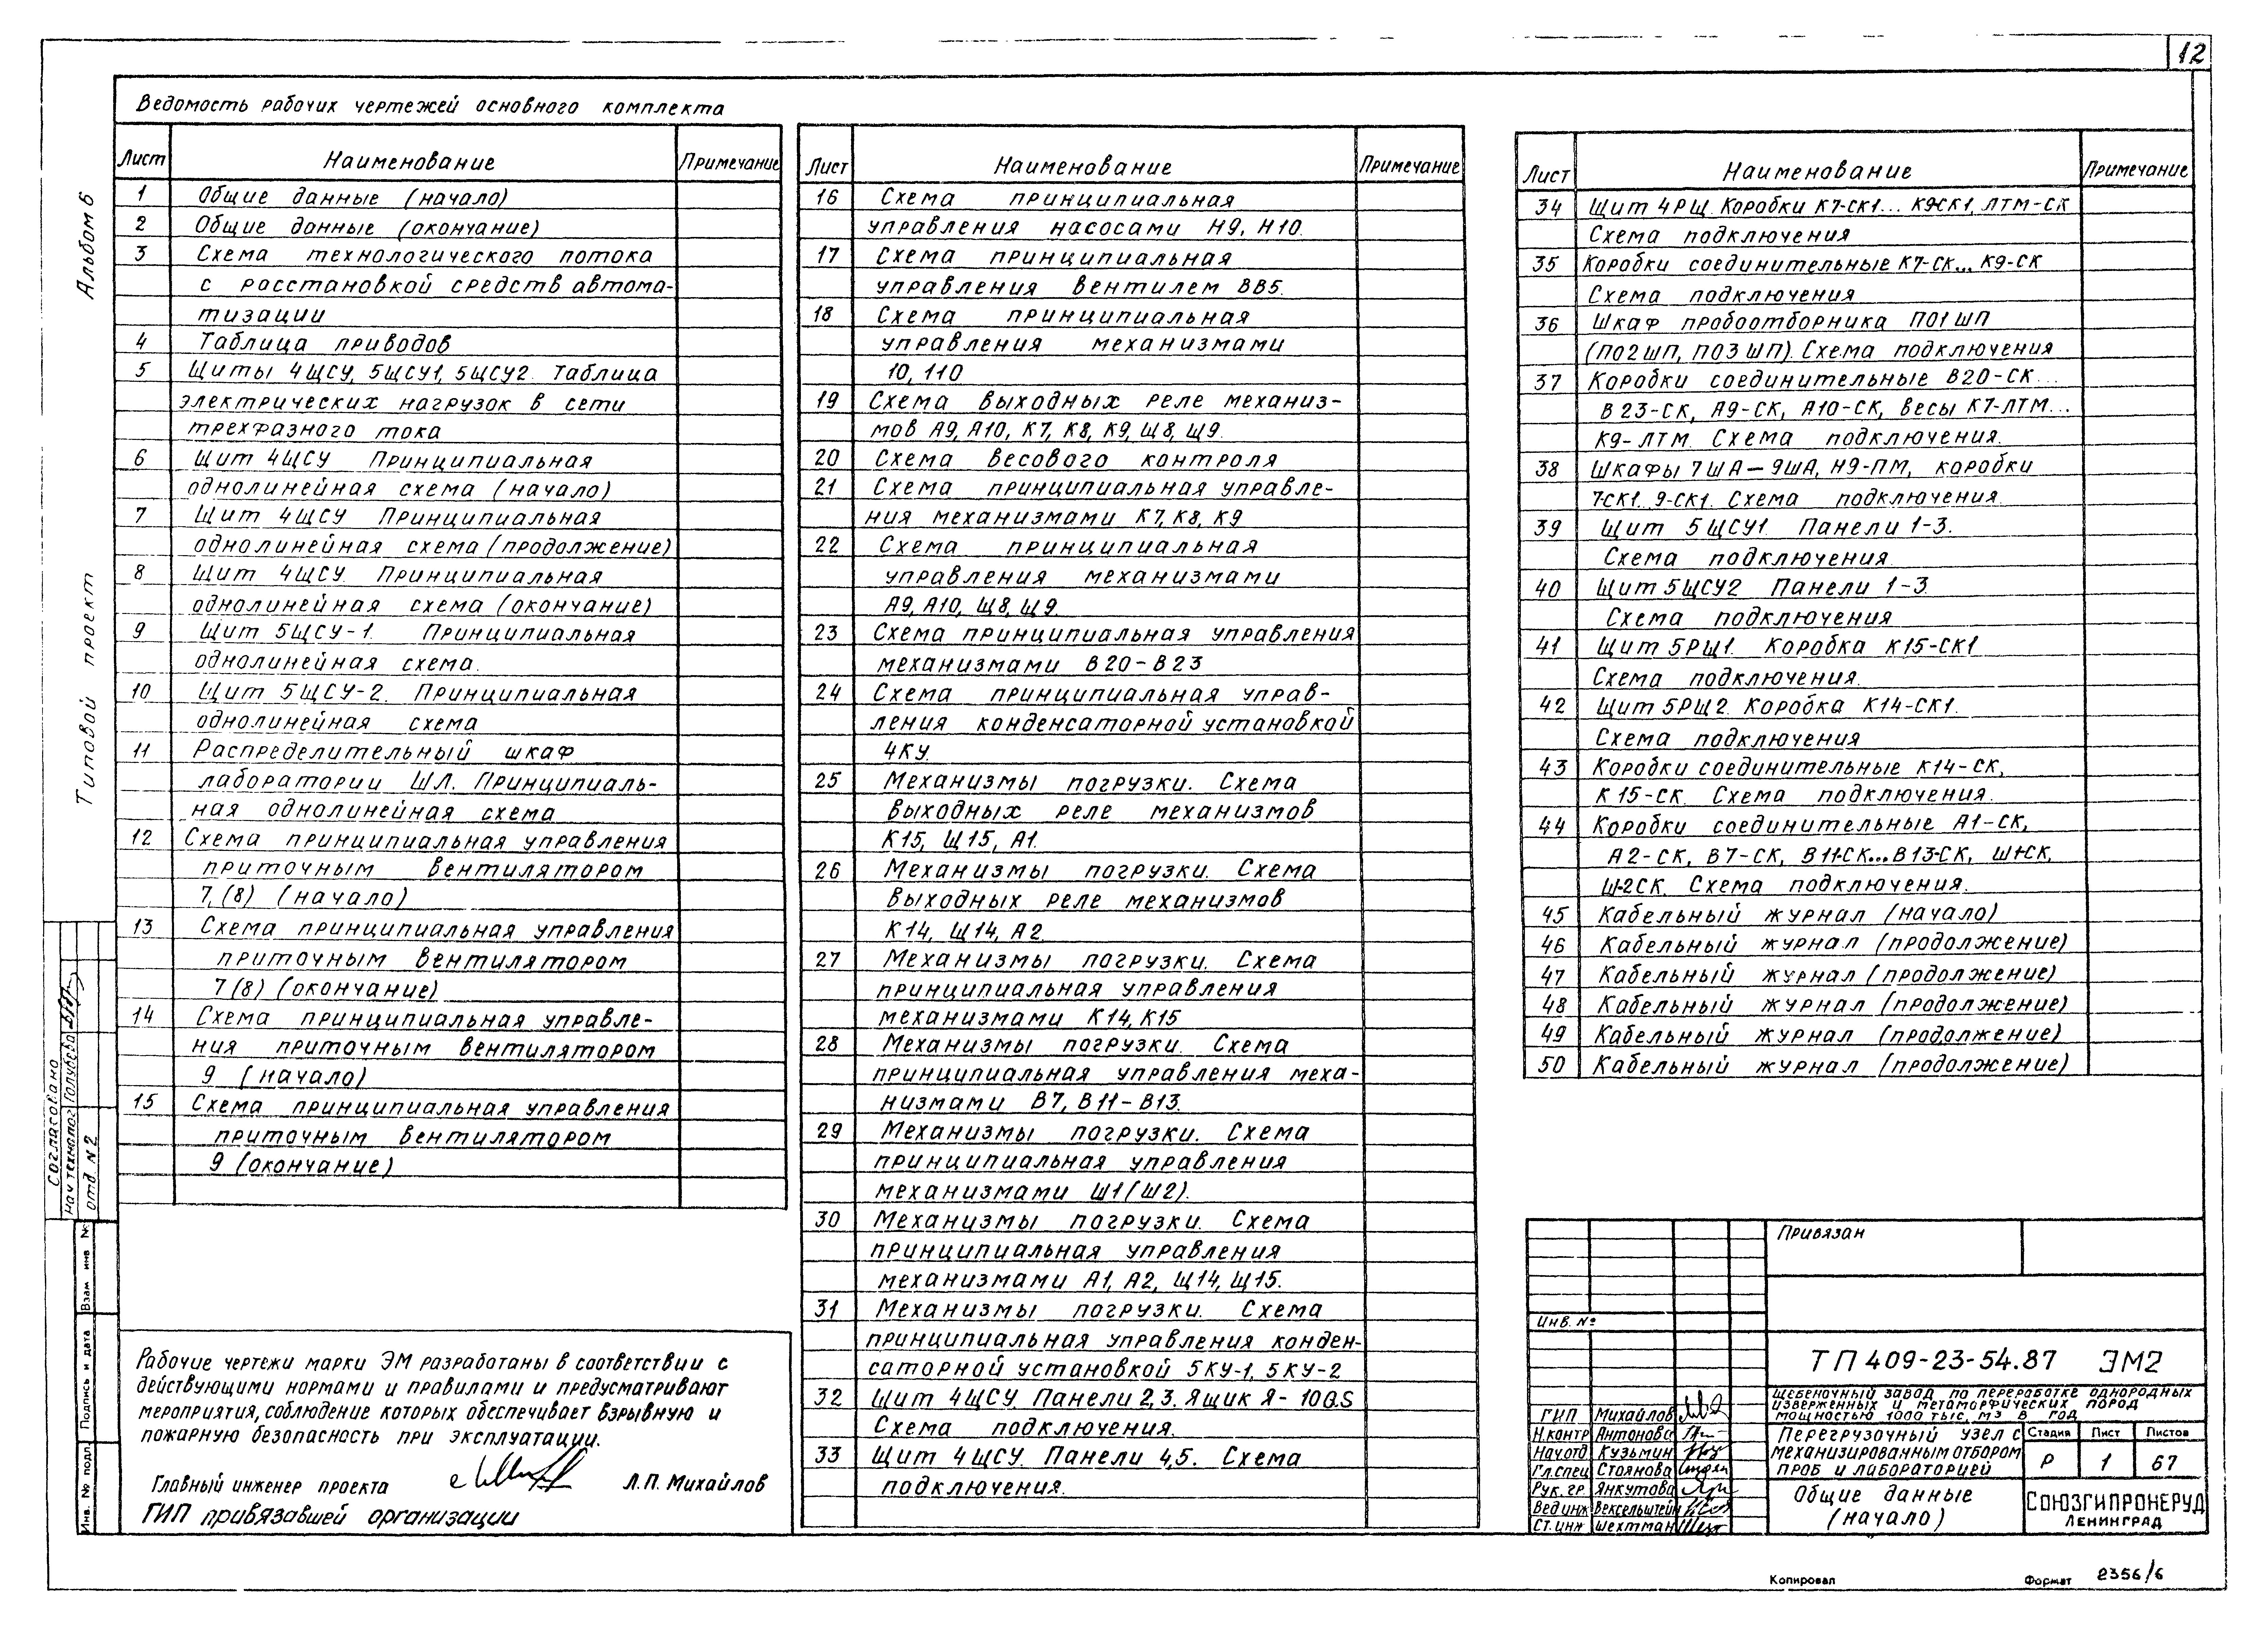 12
Альбом 6
Типовой проект
Ведомость рабочих чертежей основного комплекта
Лист Наименование Примечание
1 Общие данные (начало)
2 Общие данные (окончание)
3 Схема технологического потока
с расстановкой средств автома-
тизации
4 Таблица приводов
5 Щиты 4ЩСУ, 5ЩСУ1, 5ЩСУ2. Таблица
электрических нагрузок в сети
трехфазного тока
6 Щит 4ЩСУ Принципиальная
однолинейная схема (начало)
7 Щит 4ЩСУ Принципиальная
однолинейная схема (продолжение)
8 Щит 4ЩСУ. Принципиальная
однолинейная схема (окончание)
9 Щит 5ЩСУ-1. Принципиальная
однолинейная схема.
10 Щит 5ЩСУ-2. Принципиальная
однолинейная схема
11 Распределительный шкаф
лаборатории ШЛ. Принципиаль-
ная однолинейная схема
12 Схема принципиальная управления
приточным вентилятором
7, (8) (начало)
13 Схема принципиальная управления
приточным вентилятором
7 (8) (окончание)
14 Схема принципиальная управле-
ния приточным вентилятором
9 (начало)
15 Схема принципиальная управления
приточным вентилятором
9 (окончание)
Лист Наименование Примечание
16 Схема принципиальная
управления насосами Н9, Н10.
17 Схема принципиальная
управления вентилем ВВ5.
18 Схема принципиальная
управления механизмами
10, 110
19 Схема выходных реле механиз-
мов А9, А10, К7, К8, К9, Щ8, Щ9.
20 Схема весового контроля
21 Схема принципиальная управле-
ния механизмами К7, К8, К9
22 Схема принципиальная
управления механизмами
А9, А10, Щ8, Щ9.
23 Схема принципиальная управления
механизмами В20-В23
24 Схема принципиальная управ-
ления конденсаторной установкой
4КУ.
25 Механизмы погрузки. Схема
выходных реле механизмов
К15, Щ15, А1.
26 Механизмы погрузки. Схема
выходных реле механизмов
К14, Щ14, А2.
27 Механизмы погрузки. Схема
принципиальная управления
механизмами К14, К15
28 Механизмы погрузки. Схема
принципиальная управления меха-
низмами В7, В11-В13.
29 Механизмы погрузки. Схема
принципиальная управления
механизмами Ш1(Ш2).
30 Механизмы погрузки. Схема
принципиальная управления
механизмами А1, А2, Щ14, Щ15.
31 Механизмы погрузки. Схема
принципиальная управления конден-
саторной установкой 5КУ-1, 5КУ-2
32 Щит 4ЩСУ. Панели 2,3. Ящик Я-10QS
Схема подключения.
33 Щит 4ЩСУ. Панели 4,5. Схема
подключения.
Лист Наименование Примечание
34 Щит 4РЩ. Коробки К7-СК1... К9-СК1, ЛТМ-СК
Схема подключения
35 Коробки соединительные К7-СК... К9-СК
Схема подключения
36 Шкаф пробоотборника П01ШП
(П02ШП, П03ШП). Схема подключения
37 Коробки соединительные В20-СК...
В23-СК, А9-СК, А10-СК, весы К7-ЛТМ...
К9-ЛТМ. Схема подключения.
38 Шкафы 7ША-9ША, Н9-ПМ, коробки
7-СК1... 9-СК1. Схема подключения.
39 Щит 5ЩСУ1. Панели 1-3.
Схема подключения
40 Щит 5ЩСУ2 Панели 1-3.
Схема подключения
41 Щит 5РЩ1. Коробка К15-СК1
Схема подключения.
42 Щит 5РЩ2. Коробка К14-СК1.
Схема подключения
43 Коробки соединительные К14-СК,
К15-СК. Схема подключения.
44 Коробки соединительные А1-СК,
А2-СК, В7-СК, В11-СК...В13-СК, Ш1-СК,
Ш-2СК. Схема подключения.
45 Кабельный журнал (начало)
46 Кабельный журнал (продолжение)
47 Кабельный журнал (продолжение)
48 Кабельный журнал (продолжение)
49 Кабельный журнал (продолжение)
50 Кабельный журнал (продолжение)
Рабочие чертежи марки ЭМ разработаны в соответствии с
действующими нормами и правилами и предусматривают
мероприятия, соблюдение которых обеспечивает взрывную и
пожарную безопасность при эксплуатации.
Главный инженер проекта Л.П. Михайлов
ГИП привязавшей организации
Согласовано
нач технолог Голусева
отд N2
Взам инв. №
Подпись и дата
Инв. № подл.
Привязан
Инв. №
ТП 409-23-54.87 ЭМ2
Щебеночный завод по переработке однородных
изверженных и метаморфических пород
мощностью 1000 тыс. м3 в год
ГИП Михайлов
Н.контр Антонова
Нач.отд Кузьмин
Гл.спец Стоянова
Рук. гр Янкутова
Вед инж Вексельштейн
Ст. инж Шехтман
Перегрузочный узел с
механизированным отбором
проб и лабораторией
Стадия Лист Листов
Р 1 67
Общие данные
(начало)
СОЮЗГИПРОНЕРУД
ЛЕНИНГРАД
Копировал
Формат 2356/6